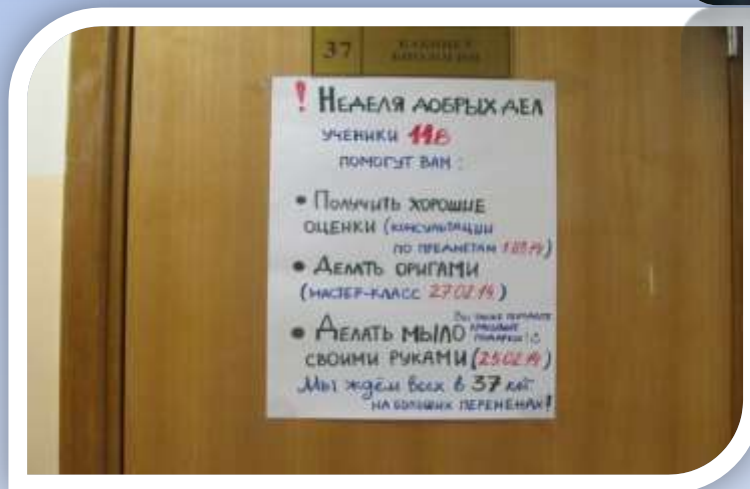 37 КАБИНЕТ
БИОЛОГИИ
! НЕДЕЛЯ ДОБРЫХ ДЕЛ
УЧЕНИКИ 11В
ПОМОГУТ ВАМ:
• ПОЛУЧИТЬ ХОРОШИЕ
ОЦЕНКИ (КОНСУЛЬТАЦИИ
ПО ПРЕДМЕТАМ)
• ДЕЛАТЬ ОРИГАМИ
(МАСТЕР-КЛАСС 27.02.14)
• ДЕЛАТЬ МЫЛО
СВОИМИ РУКАМИ (25.02.14)
Мы ждём всех в 37 каб
НА БОЛЬШИХ ПЕРЕМЕНАХ!